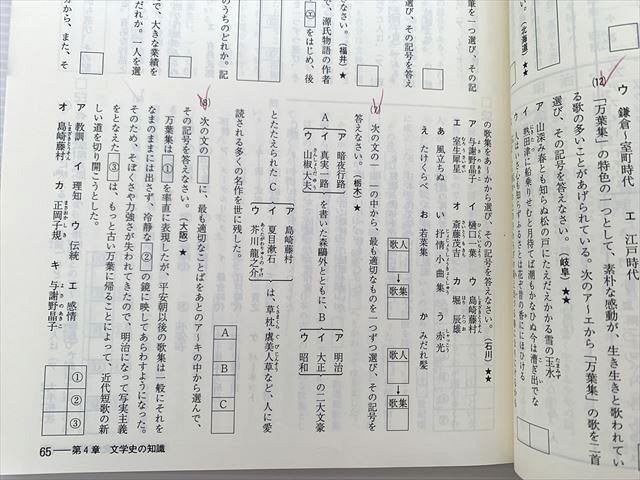 ウ 鎌倉～室町時代 エ 江戸時代
(12)「万葉集」の特色の一つとして、素朴な感動が、生き生きと歌われてい
る歌の多いことがあげられている。次のア～エから「万葉集」の歌を二首
選び、その記号を答えなさい。(岐阜)★★
ア 山深み春とも知らぬ松の戸にたえだえかかる雪の玉水
イ 熟田津に船乗りせむと月待てば潮もかなひぬ今は漕ぎ出でな
ウ 人はいさ心も知らずふるさとは花ぞ昔の香ににほひける
(北海道)★★
筆を一つ選び、その記
び、その記号を答え
なさい。(福井)★
をはじめ、後
に、源氏物語の作者
のうちのどれか。記
で、大きな業績を
だれか。一人を選
分から、また、そ
の歌集をあ～かから選び、その記号を答えなさい。(石川)★★
ア 与謝野晶子 イ 樋口一葉 ウ 島崎藤村
エ 室生犀星 オ 斎藤茂吉 カ 堀 辰雄
あ 風立ちぬ い 抒情小曲集 う 赤光
え たけくらべ お 若菜集 か みだれ髪
歌人→歌集
歌人→歌集
(7) 次の文の一の中から、最も適切なものを一つずつ選び、その記号を
答えなさい。(栃木)★
A ア 暗夜行路 イ 真実一路 ウ 山椒大夫 を書いた森鷗外とともに、B ア 明治 イ 大正 ウ 昭和 の二大文豪
とたたえられたC ア 島崎藤村 イ 夏目漱石 ウ 芥川龍之介 は、草枕、虞美人草など、人に愛
読される多くの名作を世に残した。
A B C
(8) 次の文の に、最も適切なことばをあとのア～キの中から選んで、
その記号を答えなさい。(大阪)★
万葉集は①を率直に表現したが、平安朝以後の歌集は一般にそれを
なまのままには出さず、冷静な②の鏡に映してあらわすようになった。
そのため、そぼくさや力強さが失われてきたので、明治になって写実主義
をとなえた③は、もっと古い万葉に帰ることによって、近代短歌の新
しい道を切り開こうとした。
ア 教訓 イ 理知 ウ 伝統 エ 感情
オ 島崎藤村 カ 正岡子規 キ 与謝野晶子
① ② ③
65―第4章 文学史の知識